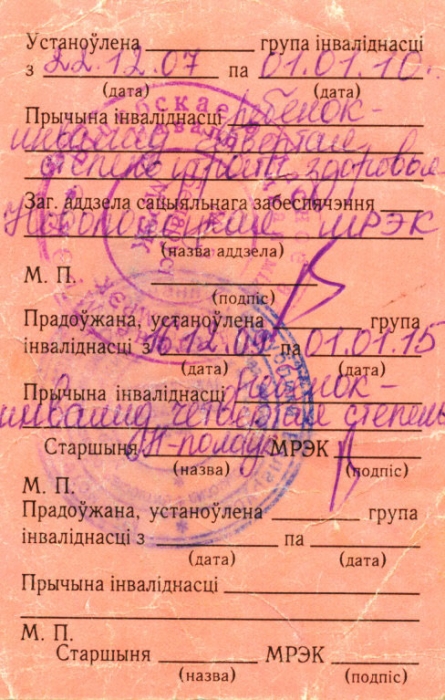 Устаноўлена ________ група інваліднасці
з 22.12.07 па 01.01.10.
(дата) (дата)
Прычына інваліднасці ребёнок-
инвалид четвертая
степень утраты здоровья
Заг. аддзела сацыяльнага забеспячэння
Новополоцкая МРЭК
(назва аддзела)
М. П.
(подпіс)
Прадоўжана, устаноўлена ____ група
інваліднасці з 16.12.09 па 01.01.15
(дата) (дата)
Прычына інваліднасці Ребёнок-
инвалид четвертая степень
Старшыня Н-полоцк МРЭК
(назва) (подпіс)
М. П.
Прадоўжана, устаноўлена ____ група
інваліднасці з ____ па ____
(дата) (дата)
Прычына інваліднасці ____
М. П.
Старшыня ____ МРЭК ____
(назва) (подпіс)